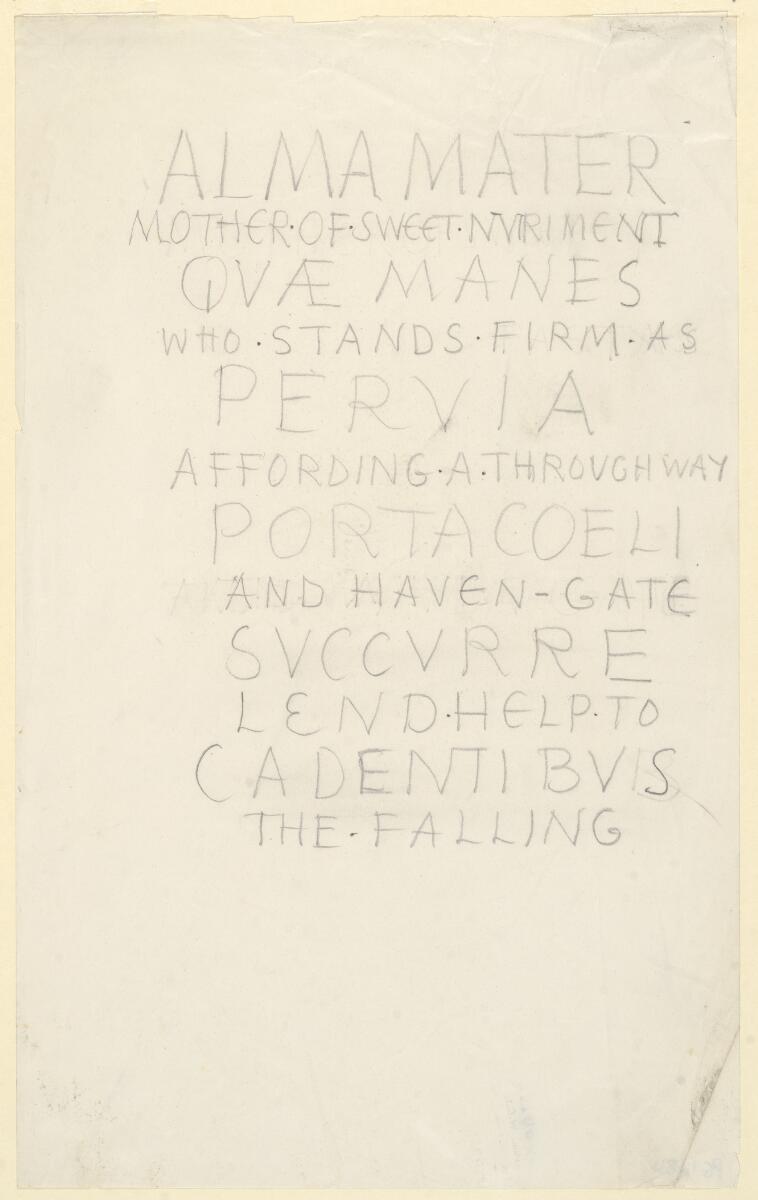 ALMA MATER
MOTHER·OF·SWEET·NVTRIMENT
QVÆ MANES
WHO·STANDS·FIRM·AS
PERVIA
AFFORDING·A·THROVGHWAY
PORTA COELI
AND HAVEN-GATE
SVCCVRRE
LEND·HELP·TO
CADENTIBVS
THE·FALLING